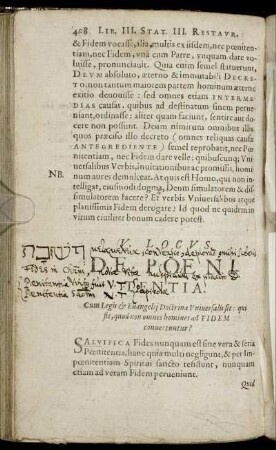 408 LIB. III. STAT. III. RESTAVR.
& Fidem vocasse, alia multis ex iisdem, nec pœnitenti-
am, nec Fidem, vnà cum Patre, vnquam dare volu-
isse, pronunciavit. Qui enim semel statuerunt,
DEVM absoluto, æterno & immutabili DECRE-
TO, non tantum maiorem partem hominum æterno
exitio devouisse: sed omnes etiam INTERME-
DIAS causas, quibus ad destinatum finem perue-
niant, ordinasse: aliter quàm faciunt, sentire aut do-
cere non possunt. Deum minimum omnibus illis
quos præciso illo decreto (omnes reliquas causas
ANTEGREDIENTE) semel reprobavit, nec Pœ-
nitentiam, nec Fidem dare velle: quibuscunq; Vni-
versalibus Verbis, inuitationibus ac promissis, homi-
num aures demulceat. Atqui est Homo, qui non in-
NB. telligat, eiusmodi dogma, Deum simulatorem & dis-
simulatorem facere? Et verbis Vniversalibus atque
planissimis Fidem derogare? Id quod ne quidem in
virum civiliter bonum cadere potest.
LOCVS
DE POENI-
TENTIA.
Cum Legis & Evangelij Doctrina Vniversalis sit: qui
fit, quòd non omnes homines ad FIDEM
convertuntur?
SALVIFICA Fides nunquam est sine vera & seria
Pœnitentia, hanc quia multi negligunt, & per Im-
pœnitentiam Spiritui sancto resistunt, nunquam
etiam ad veram Fidem perveniunt.
Quid